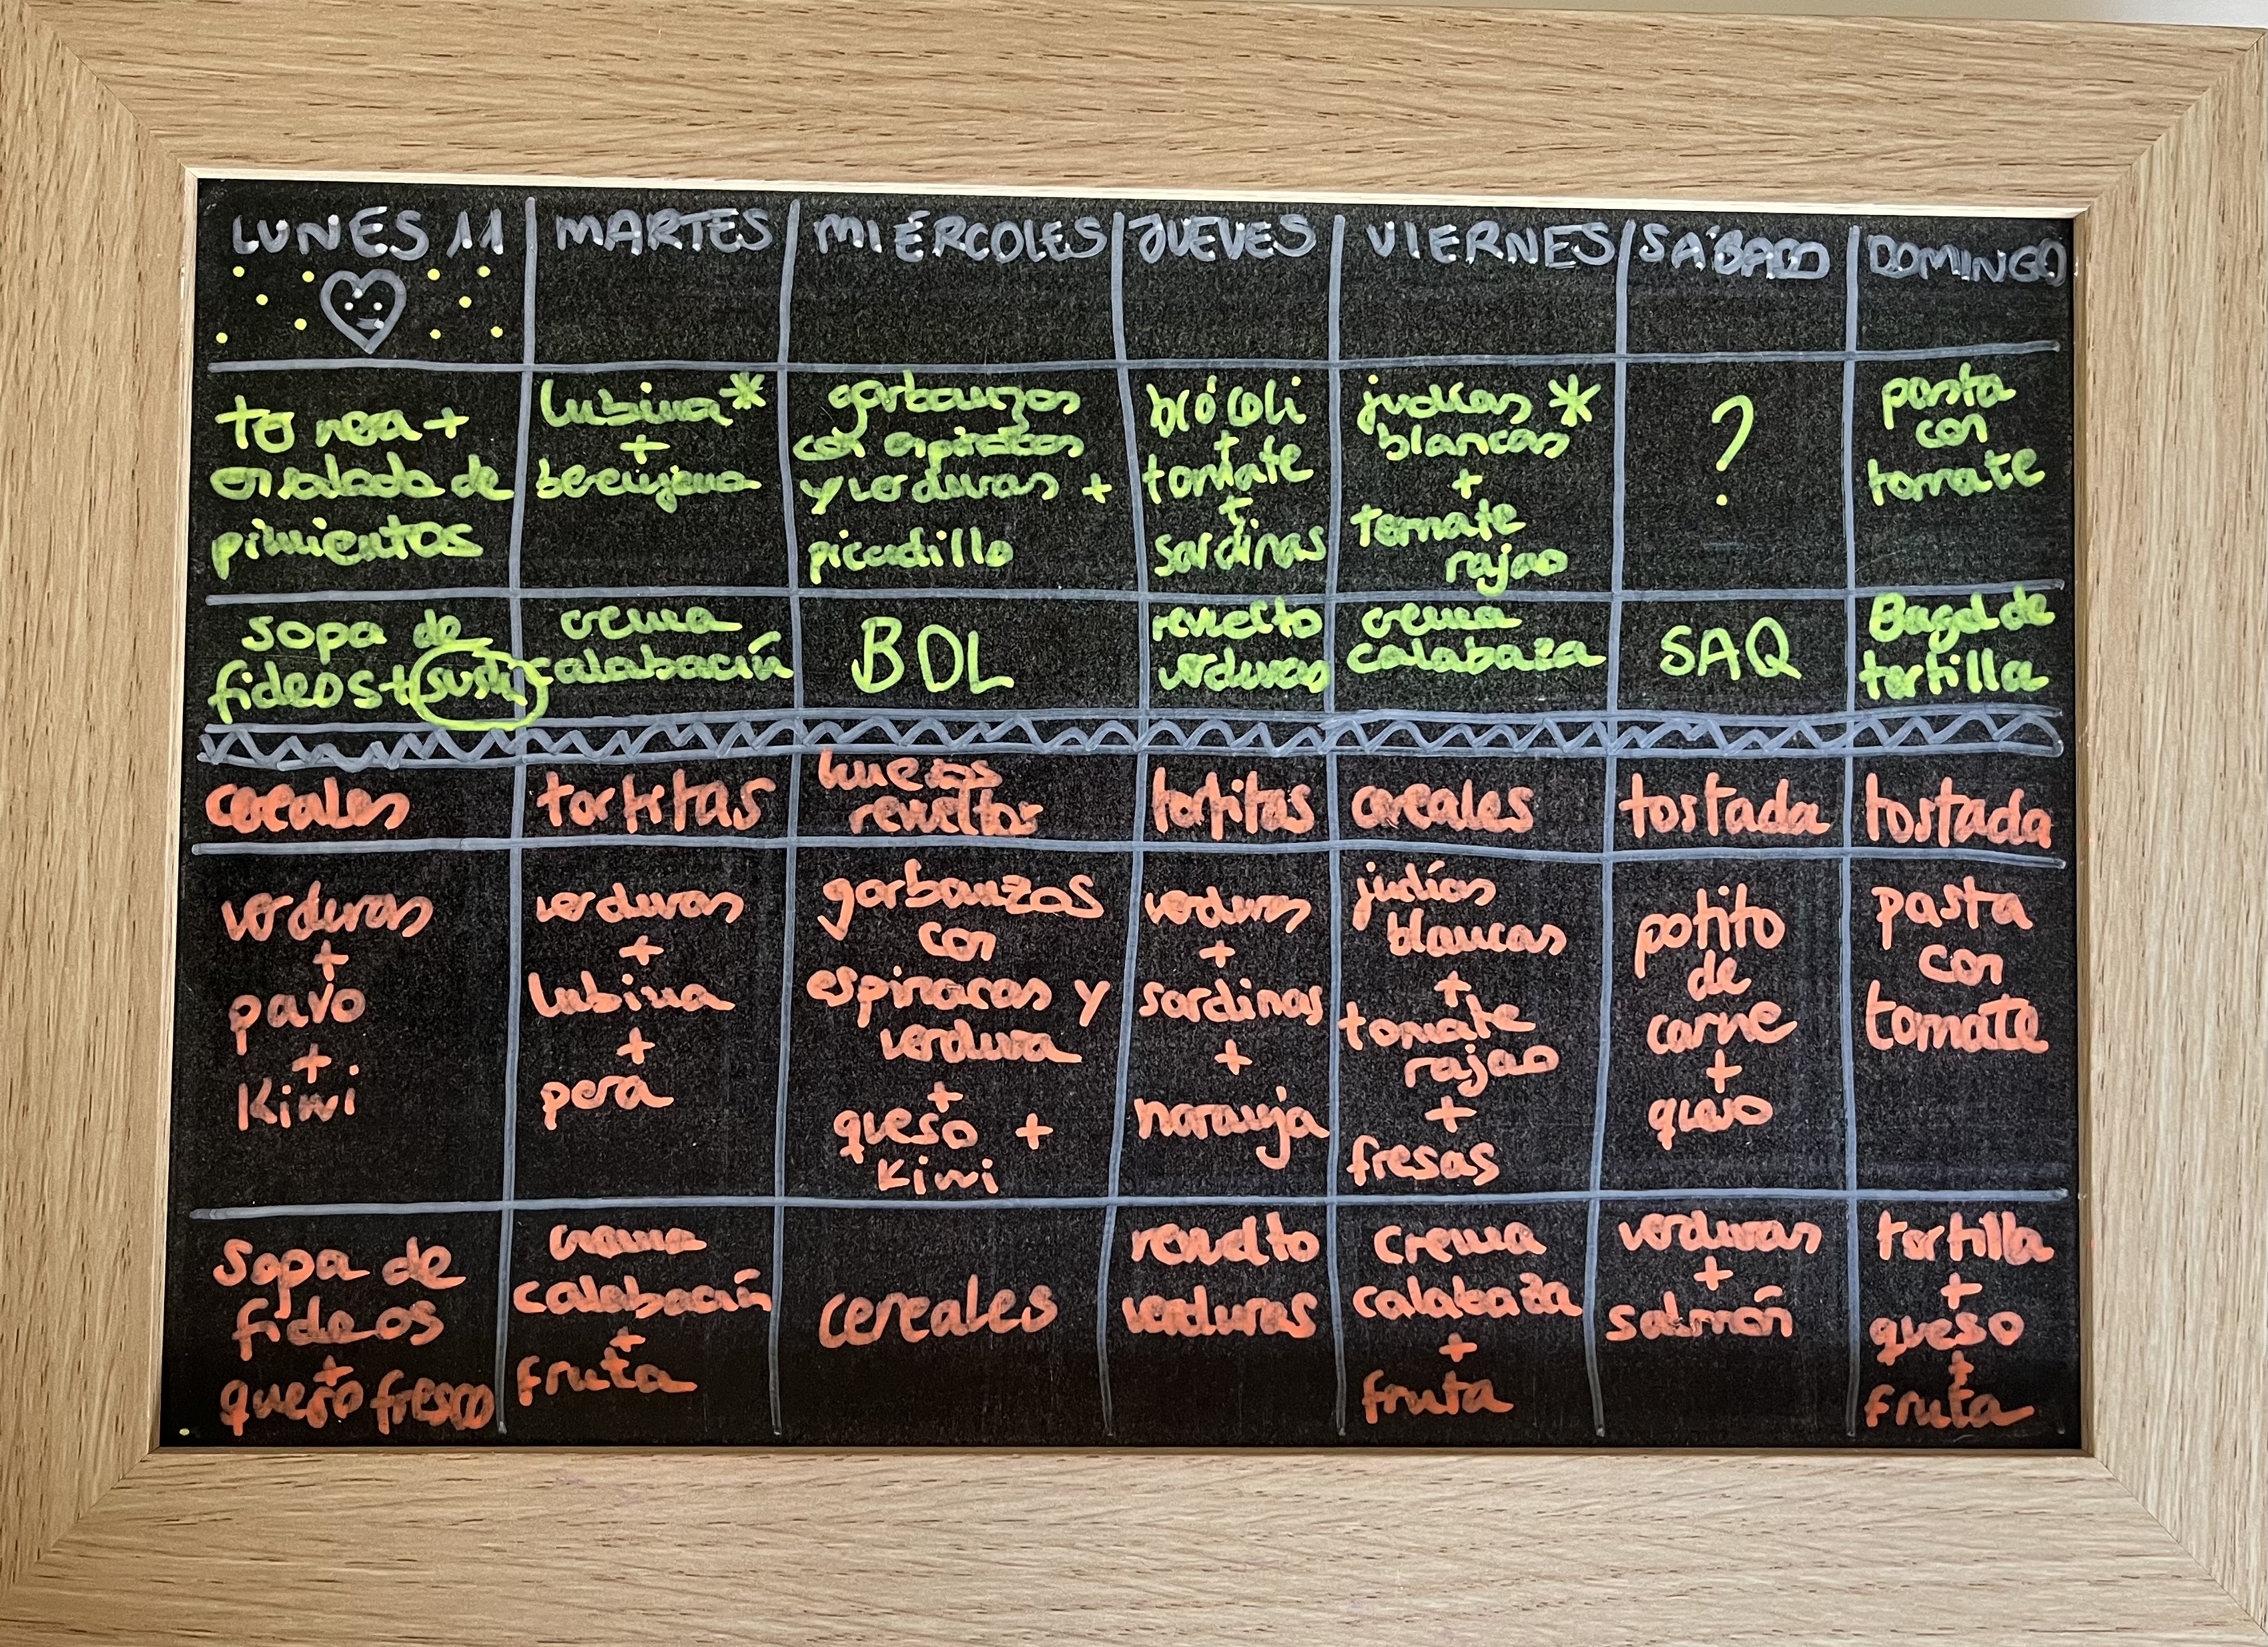 LUNES 11
MARTES
MIÉRCOLES
JUEVES
VIERNES
SÁBADO
DOMINGO
to nesa +
ensalada de
pimientos
lubina*
+
berenjena
garbanzos
con espinacas
y verduras +
picadillo
brócoli
+
tomtate
+
sardinas
judías *
blancas
+
tomate
rajao
?
pasta
con
tomate
sopa de
fideos + sushi
crema
calabacín
BOL
revuelto
verduras
crema
calabaza
SAQ
Bagel de
tortilla
cereales
tortitas
huevos
revueltos
tortitas
cereales
tostada
tostada
verduras
+
pavo
+
Kiwi
verduras
+
lubina
+
pera
garbanzos
con
espinacas y
verdura
+
queso +
Kiwi
verduras
+
sardinas
+
naranja
judías
blancas
+
tomate
rajao
+
fresas
potito
de
carne
+
queso
pasta
con
tomate
sopa de
fideos
+
queso fresco
crema
calabacín
+
fruta
cereales
revuelto
verduras
crema
calabaza
+
fruta
verduras
+
salmón
tortilla
+
queso
+
fruta